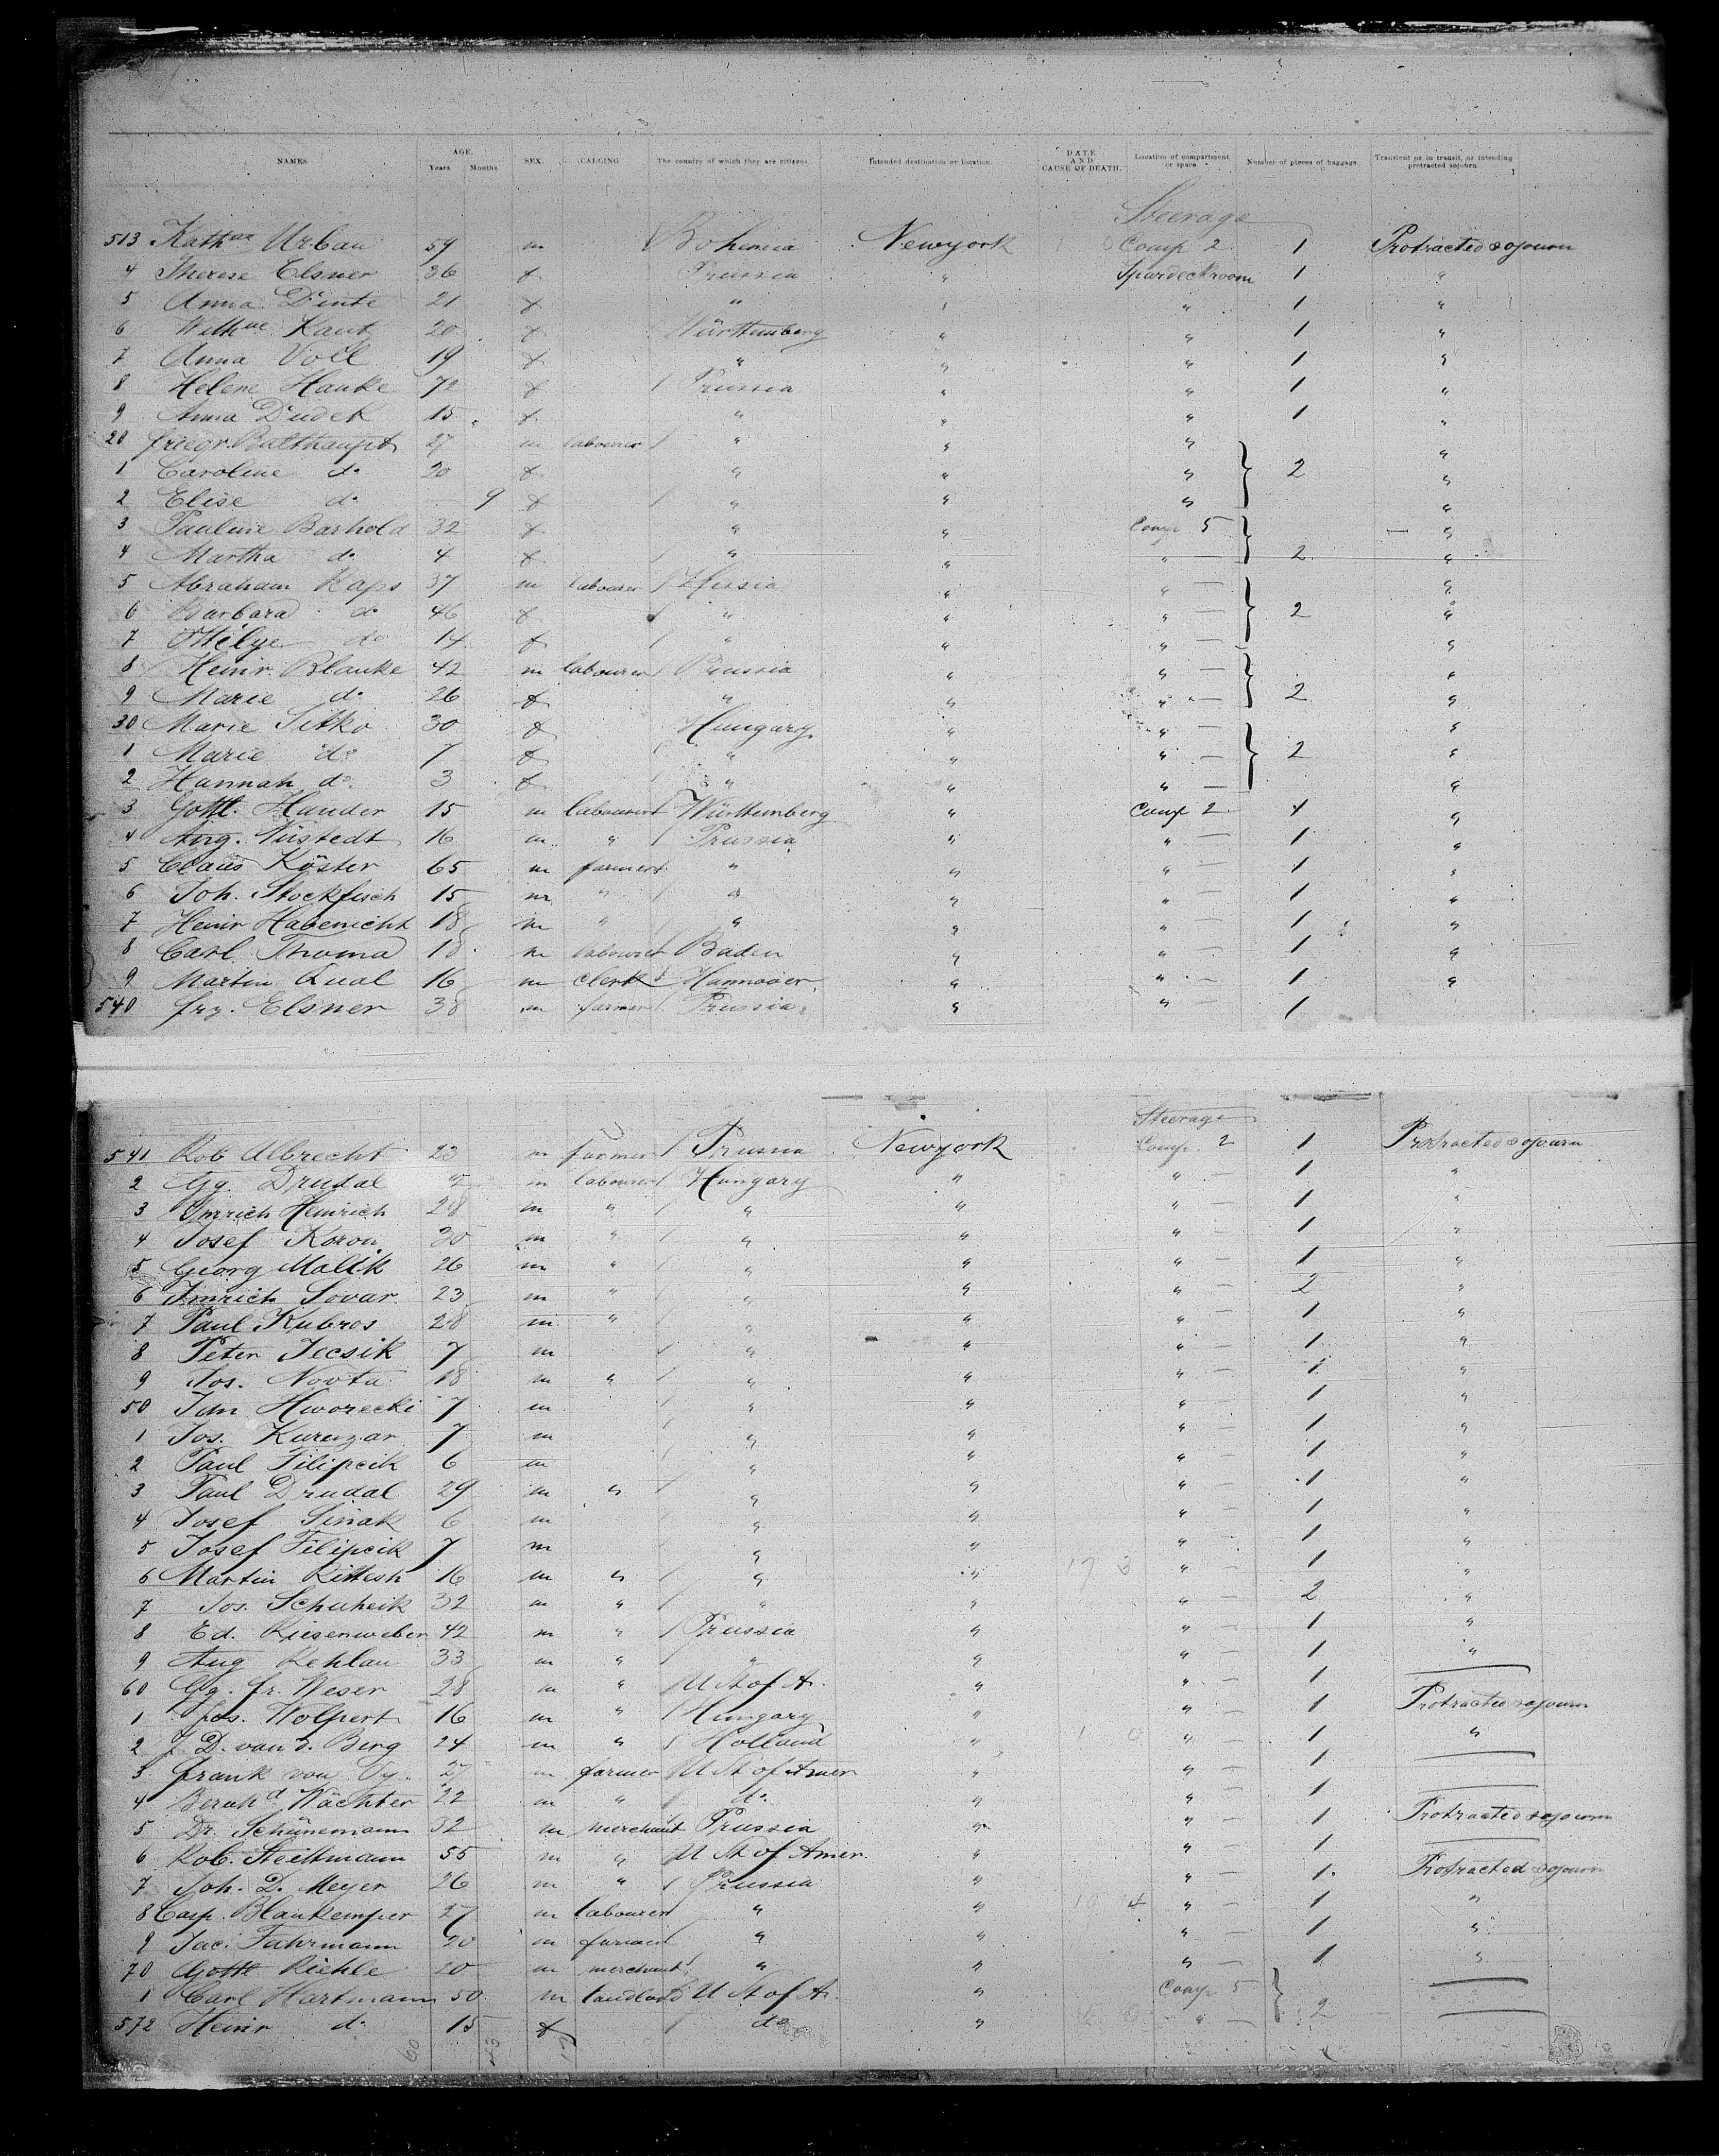 NAMES. AGE. Years Months SEX. CALLING The country of which they are citizens. Intended destination or location. DATE AND CAUSE OF DEATH. Location of compartment or space Number of pieces of baggage. Transient or in transit, or intending protracted sojourn.
Steerage
513 Kath'ne Urban 59 m Bohemia Newyork Comp 2 1 Protracted sojourn
4 Therese Elsner 36 f Prussia " Spardeckroom 1 "
5 Anna Dinte 21 f " " " 1 "
6 Wilh'ne Kautz 20 f Württemberg " " 1 "
7 Anna Voll 19 f " " " 1 "
8 Helene Hanke 72 f Prussia " " 1 "
9 Anna Dudek 15 f " " " 1 "
20 Friedr. Bulthaupt 27 m labourer " " " "
1 Caroline do 20 f " " " 2 "
2 Elise do 9 f " " " "
3 Pauline Barhold 32 f " " Comp 5 "
4 Martha do 4 f " " " 2 "
5 Abraham Kaps 37 m labourer Hessia " " "
6 Barbara do 46 f " " " 2 "
7 do 14 f " " " "
8 Heinr. Blanke 42 m labourer Prussia " " "
9 Marie do 26 f " " " 2 "
30 Marie Sitko 30 f Hungary " " "
1 Marie do 7 f " " " 2 "
2 Hannah do 3 f " " " "
3 Gottl. Hander 15 m labourer Württemberg " Comp 2 1 "
4 Aug. Nüstedt 16 m " Prussia " " 1 "
5 Claus Köster 65 m farmer " " " 1 "
6 Joh. Stockfisch 15 m " " " " 1 "
7 Heinr Habenicht 18 m " " " " 1 "
8 Carl Thoma 18 m labourer Baden " " 1 "
9 Martin Qual 16 m clerk Hannover " " 1 "
540 Frz. Elsner 38 m farmer Prussia " " 1
Steerage
541 Rob Albrecht 23 m farmer Prussia Newyork Comp. 2 1 Protracted sojourn
2 Gg. Drudal m labourer Hungary " " 1 "
3 Imrich Heinrich 28 m " " " " 1 "
4 Josef Koron 30 m " " " " 1 "
5 Georg Malik 26 m " " " " 1 "
6 Imrich Sovar 23 m " " " " 2 "
7 Paul Kubros 28 m " " " " 1 "
8 Peter Jecsik 7 m " " " 1 "
9 Jos. Novta 18 m " " " " 1 "
50 Jan Hworecki 7 m " " " 1 "
1 Jos. Kuruzar 7 m " " " 1 "
2 Paul Filipcik 6 m " " " 1 "
3 Paul Drudal 29 m " " " " 1 "
4 Josef Sinak 6 m " " " 1 "
5 Josef Filipcik 7 m " " " 1 "
6 Martin Kittesh 16 m " " " " 1 "
7 Jos. Schuheik 32 m " " " " 2 "
8 Ed. Riesenweber 42 m " Prussia " " 1 "
9 Aug Rehlau 33 m " " " " 1 "
60 Gg. Fr. Weser 28 m " U St of A. " " 1
1 Jos. Wolpert 16 m " Hungary " " 1 Protracted sojourn
2 J. D. van d. Berg 24 m " Holland " " 1 "
3 Frank von 27 m farmer U St of Amer " " 1
4 Bernh'd Wächter 22 m " do " " 1
5 Dr. Schünemann 32 m merchant Prussia " " 1 Protracted sojourn
6 Rob. Steittmann 55 m " U St of Amer. " " 1
7 Joh. D. Meyer 26 m " Prussia " " 1 Protracted sojourn
8 Casp. Blankemper 27 m labourer " " " 1 "
9 Jac. Fuhrmann 20 m farmer " " " 1 "
70 Gottl. Riehle 20 m merchant " " " 1 "
1 Carl Hartmann 50 m landlord U St of A. " Comp 5
572 Heinr do 15 f do " " 2